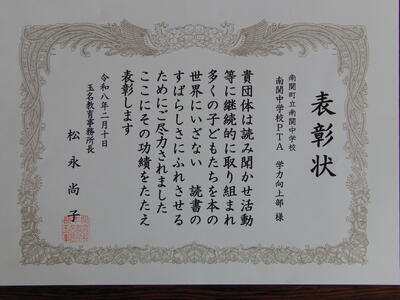 表彰状
南関町立南関中学校
南関中学校PTA 学力向上部 様
貴団体は読み聞かせ活動
等に継続的に取り組まれ
多くの子どもたちを本の
世界にいざない 読書の
すばらしさにふれさせる
ためにご尽力されました
ここにその功績をたたえ
表彰します
令和八年二月十日
玉名教育事務所長
松永尚子